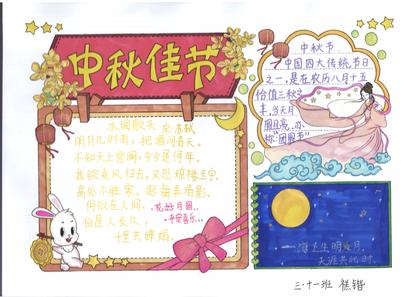 中秋佳节
水调歌头 宋 苏轼
明月几时有，把酒问青天。
不知天上宫阙，今夕是何年。
我欲乘风归去，又恐琼楼玉宇，
高处不胜寒。起舞弄清影，
何似在人间。
花好月圆..
平安喜乐...
但愿人长久，
千里共婵娟。
中秋节
中国四大传统节日
之一，是在农历八月十五
恰值三秋之
半，当天月
圆月亮，亦
称“团圆节”
海上生明月，
天涯共此时。
三·十一班